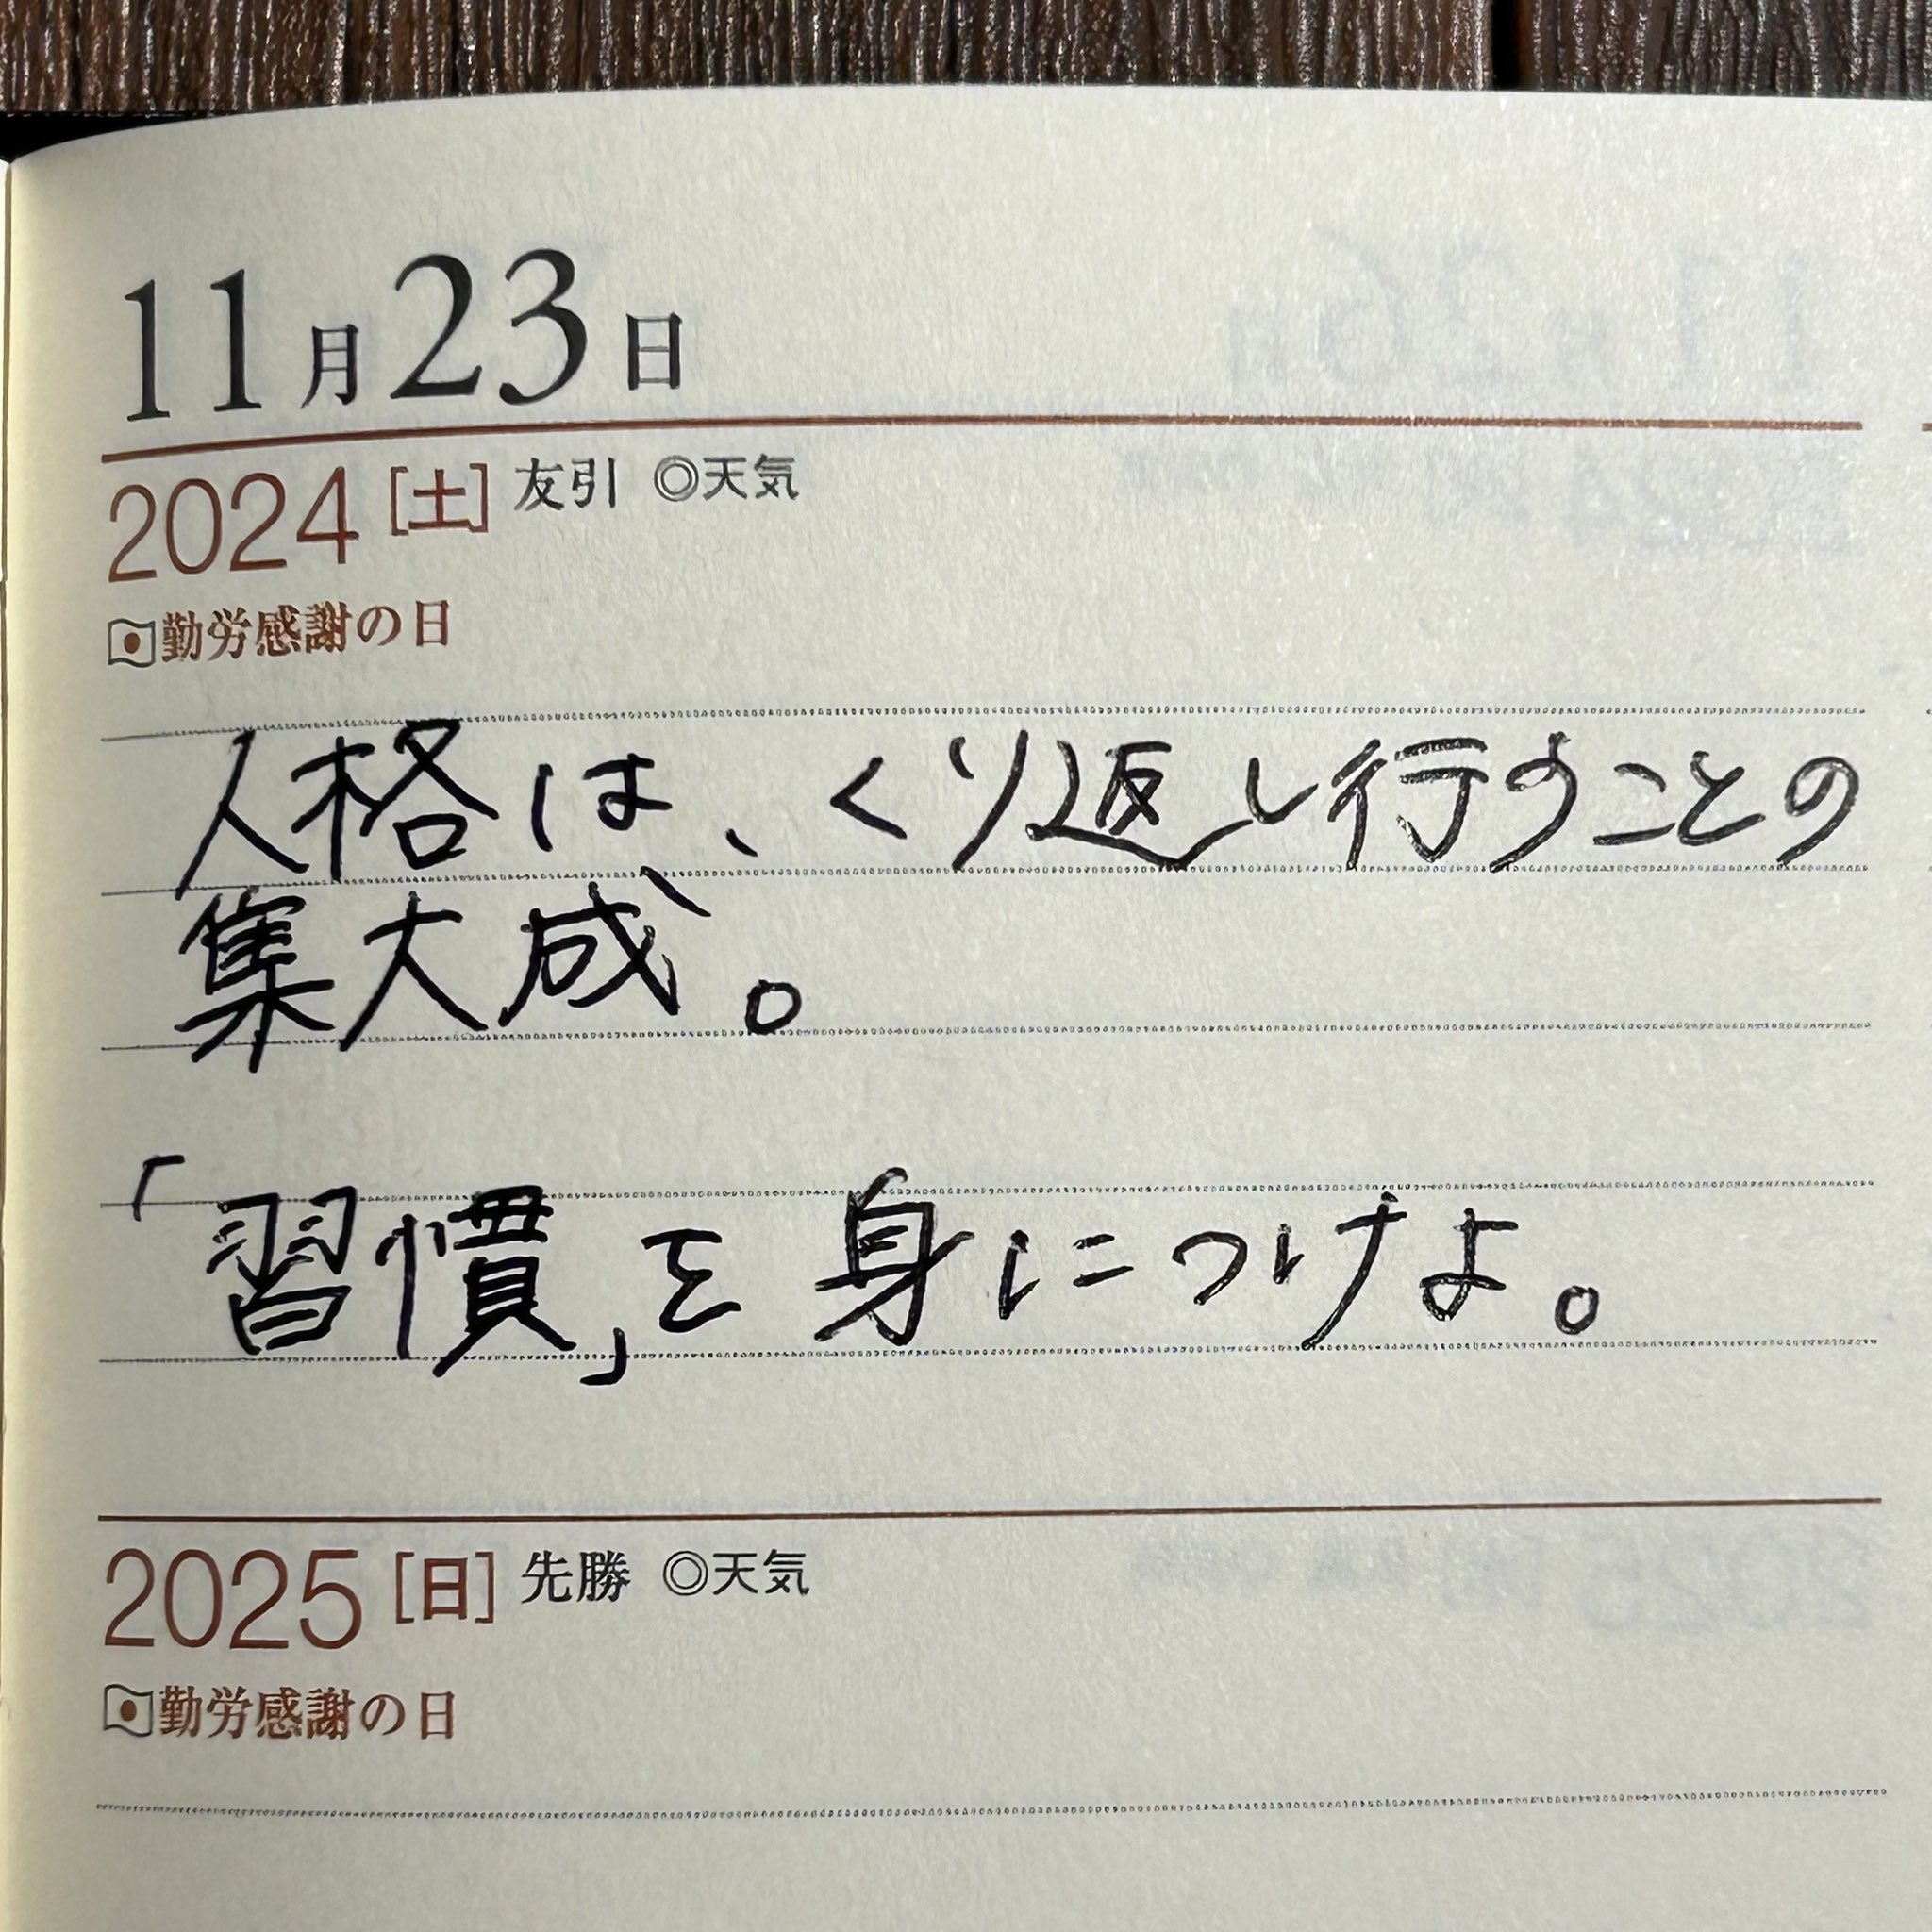 11月23日
2024 [土] 友引 ◎天気
勤労感謝の日
人格は、くり返し行うことの
集大成。
「習慣」を身につけよ。
2025 [日] 先勝 ◎天気
勤労感謝の日